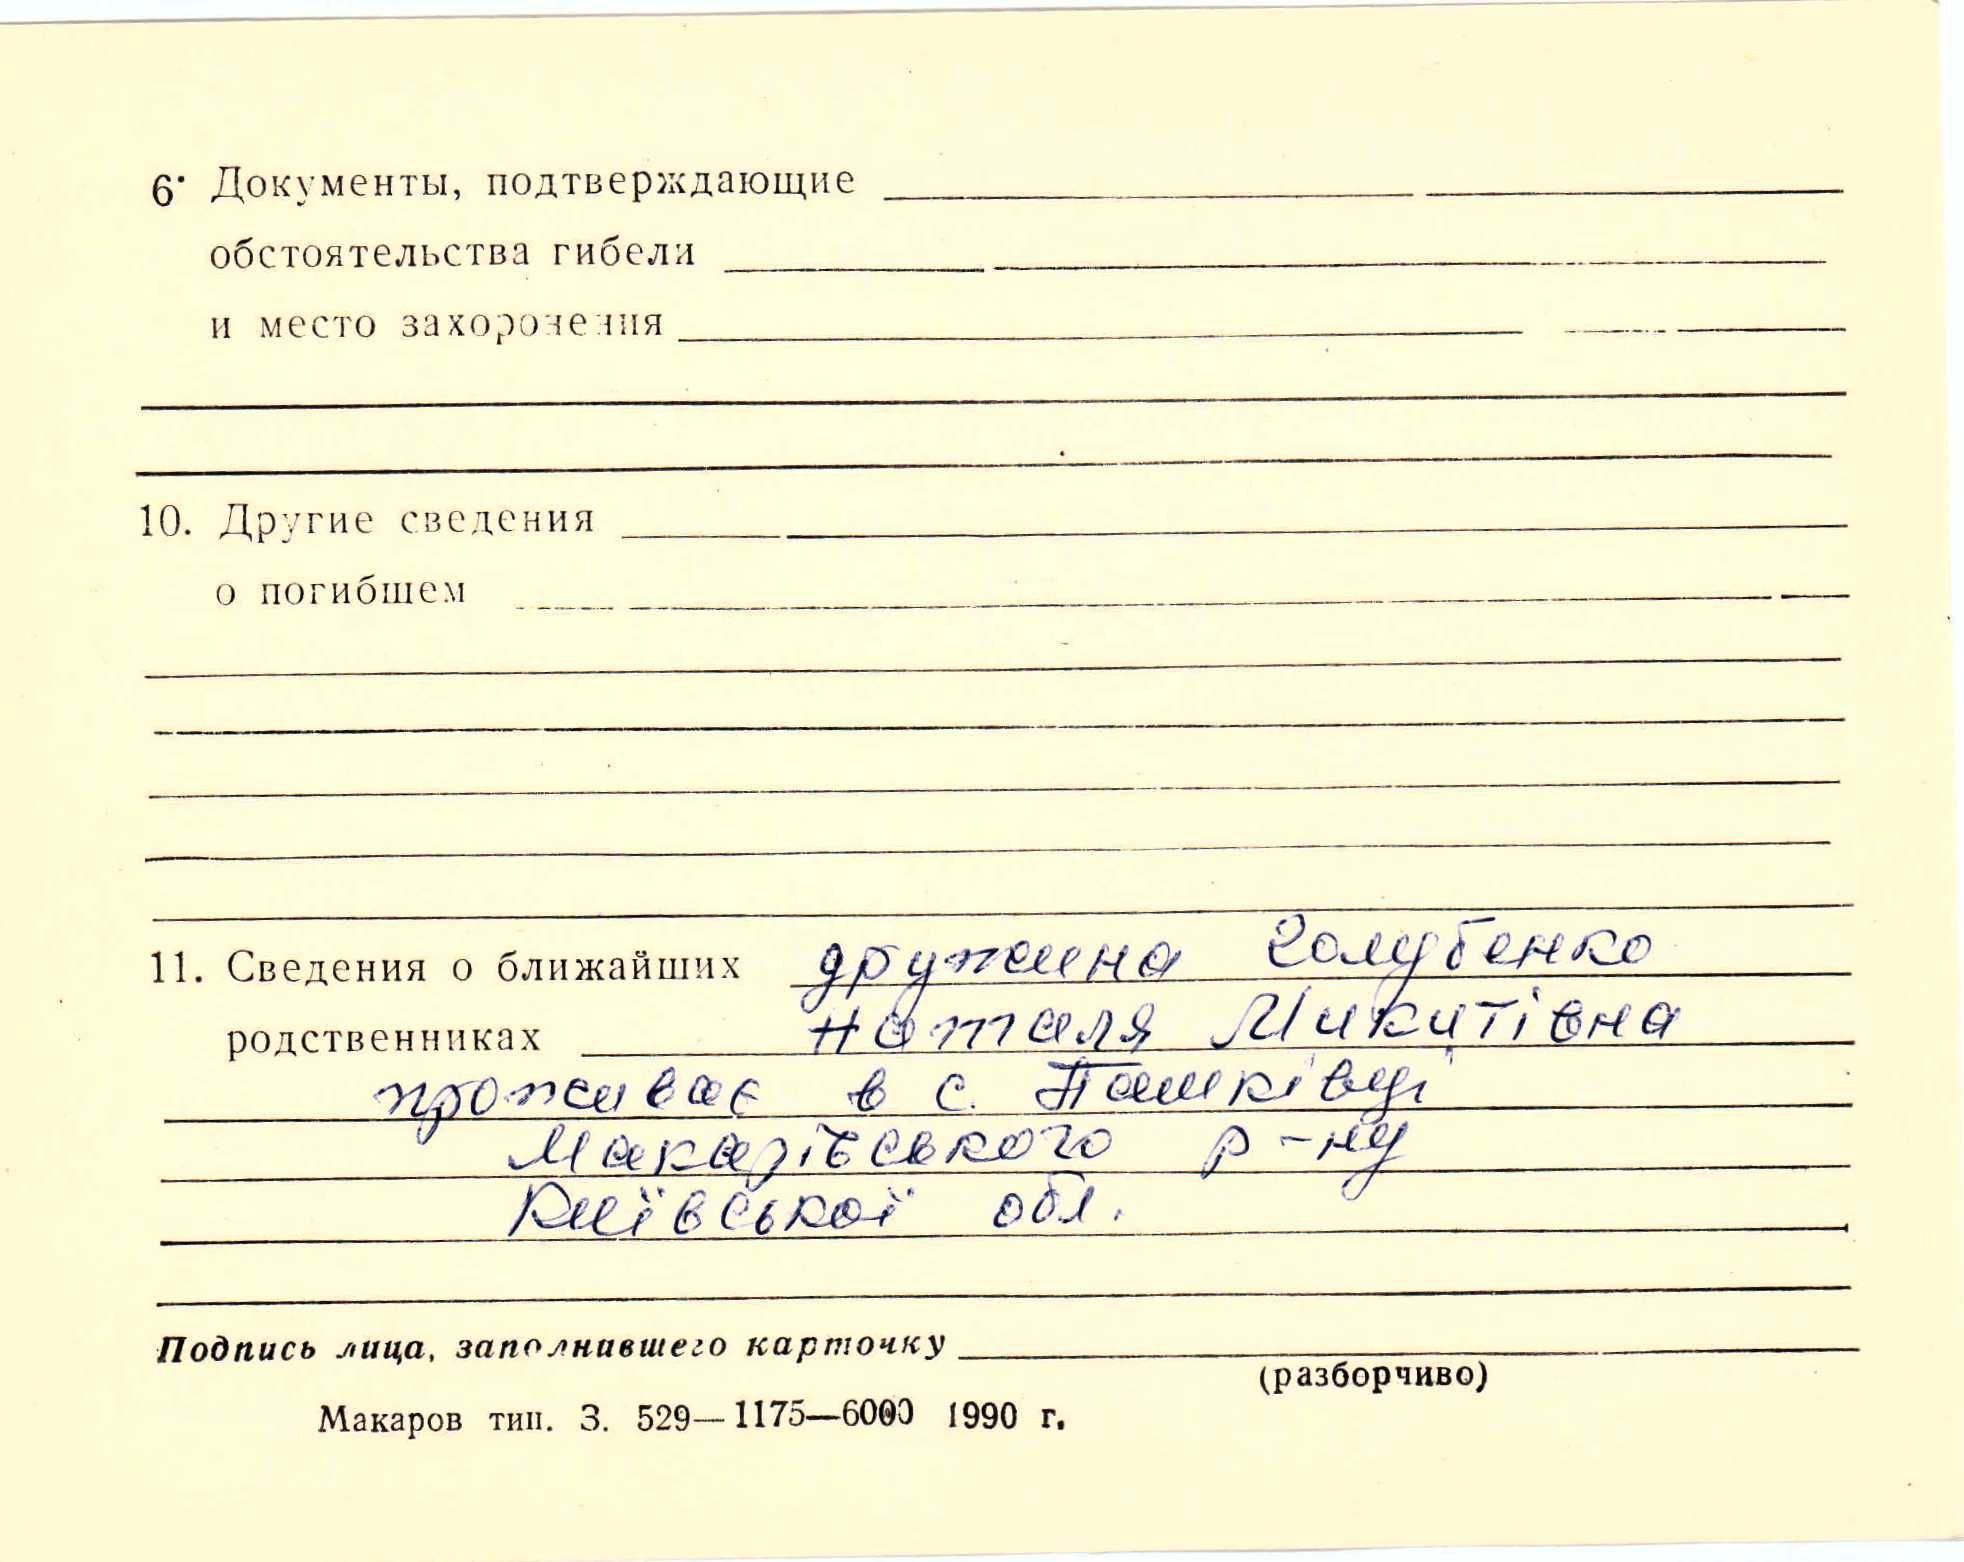 6. Документы, подтверждающие
обстоятельства гибели
и место захоронения
10. Другие сведения
о погибшем
11. Сведения о ближайших дружина Голубенко
родственниках Наталя Микитівна
проживає в с. Пашківці
Макарівського р-ну
Київської обл.
Подпись лица, заполнившего карточку
(разборчиво)
Макаров тип. З. 529—1175—6000 1990 г.